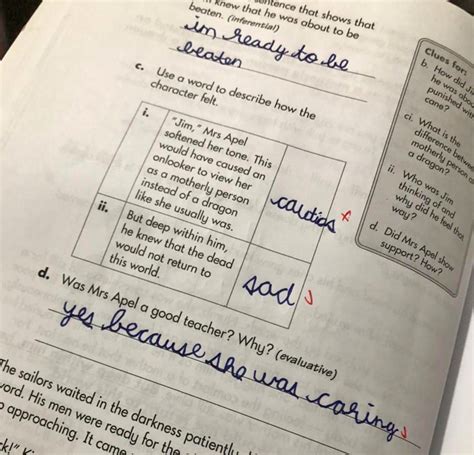 sentence that shows that
knew that he was about to be
beaten. (inferential)
im ready to be
beaten
c. Use a word to describe how the
character felt.
i. "Jim," Mrs Apel
softened her tone. This
would have caused an
onlooker to view her
as a motherly person
instead of a dragon
like she usually was.
cautios
ii. But deep within him,
he knew that the dead
would not return to
this world.
sad
d. Was Mrs Apel a good teacher? Why? (evaluative)
yes because she was caring
Clues for
b. How did
he was
punished
cane?
ci. What is the
difference
motherly person
a dragon?
ii. Who was Jim
thinking of and
why did he feel that
way?
d. Did Mrs Apel show
support? How?
The sailors waited in the darkness patiently
His men were ready for the
approaching. It came